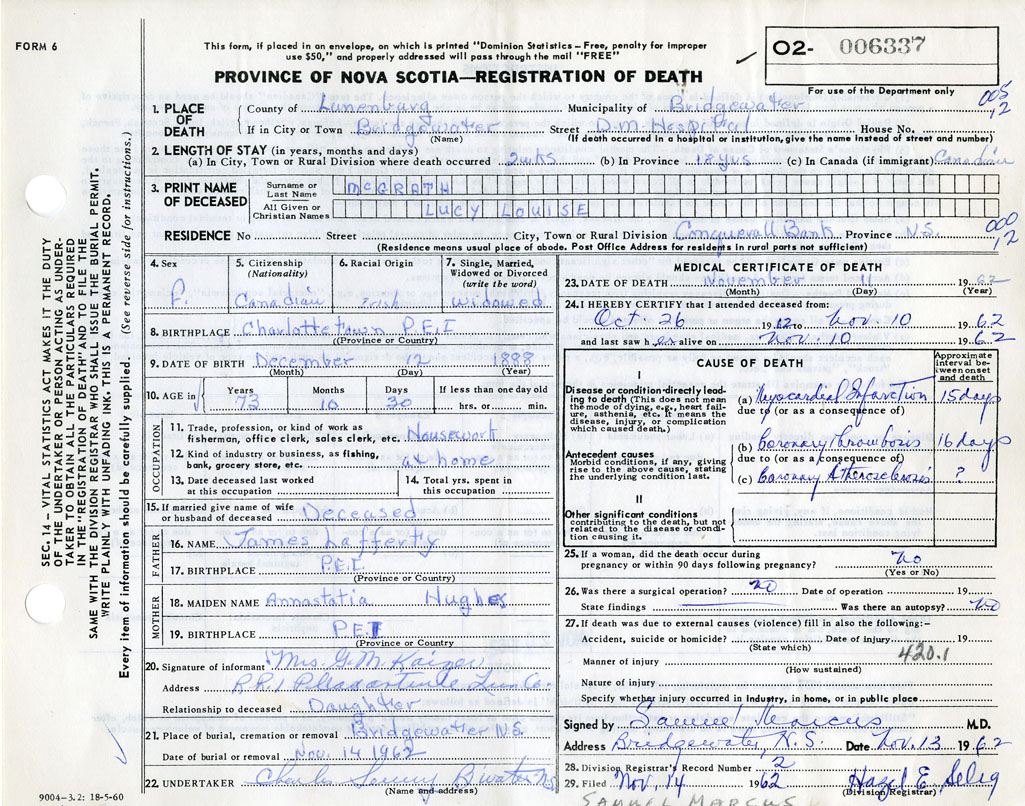 FORM 6
This form, if placed in an envelope, on which is printed "Dominion Statistics – Free, penalty for improper
use $50," and properly addressed will pass through the mail "FREE"
PROVINCE OF NOVA SCOTIA—REGISTRATION OF DEATH
O2- 006337
For use of the Department only
005
12
1. PLACE OF DEATH
County of Lunenburg Municipality of Bridgewater
If in City or Town Bridgewater Street D.M. Hospital House No.
(Name) (If death occurred in a hospital or institution, give the name instead of street and number)
2. LENGTH OF STAY (in years, months and days)
(a) In City, Town or Rural Division where death occurred 2 wks (b) In Province 18 yrs (c) In Canada (if immigrant) Canadian
3. PRINT NAME OF DECEASED
Surname or Last Name McGRATH
All Given or Christian Names LUCY LOUISE
RESIDENCE No Street City, Town or Rural Division Conquerall Bank Province N.S.
000
12
(Residence means usual place of abode. Post Office Address for residents in rural parts not sufficient)
4. Sex F.
5. Citizenship (Nationality) Canadian
6. Racial Origin Irish
7. Single, Married, Widowed or Divorced (write the word) Widowed
8. BIRTHPLACE Charlottetown P.E.I
(Province or Country)
9. DATE OF BIRTH December 12 1888
(Month) (Day) (Year)
10. AGE in Years 73 Months 10 Days 30 If less than one day old hrs. or min.
OCCUPATION
11. Trade, profession, or kind of work as fisherman, office clerk, sales clerk, etc. Housework
12. Kind of industry or business, as fishing, bank, grocery store, etc. at home
13. Date deceased last worked at this occupation
14. Total yrs. spent in this occupation
15. If married give name of wife or husband of deceased Deceased
FATHER
16. NAME James Lafferty
17. BIRTHPLACE P.E.I
(Province or Country)
MOTHER
18. MAIDEN NAME Annastatia Hughes
19. BIRTHPLACE P.E.I
(Province or Country)
20. Signature of informant Mrs. G. M. Kaizer
Address R.R.1 Pleasantville Lun Co.
Relationship to deceased Daughter
21. Place of burial, cremation or removal Bridgewater N.S.
Date of burial or removal Nov. 14 1962
22. UNDERTAKER Charles B'water N.S.
(Name and address)
MEDICAL CERTIFICATE OF DEATH
23. DATE OF DEATH November 11 1962
(Month) (Day) (Year)
24. I HEREBY CERTIFY that I attended deceased from:
Oct 26 1962 to Nov. 10 1962
and last saw her alive on Nov. 10 1962
CAUSE OF DEATH
Approximate interval between onset and death
I
Disease or condition directly leading to death (This does not mean the mode of dying, e.g., heart failure, asthenia, etc. It means the disease, injury, or complication which caused death.)
(a) Myocardial Infarction 15 days
due to (or as a consequence of)
Antecedent causes
Morbid conditions, if any, giving rise to the above cause, stating the underlying condition last.
(b) Coronary thrombosis 16 days
due to (or as a consequence of)
(c) Coronary Atherosclerosis ?
II
Other significant conditions
contributing to the death, but not related to the disease or condition causing it.
25. If a woman, did the death occur during pregnancy or within 90 days following pregnancy? No
(Yes or No)
26. Was there a surgical operation? no Date of operation 19
State findings Was there an autopsy? no
27. If death was due to external causes (violence) fill in also the following:–
Accident, suicide or homicide? Date of injury 19
(State which) 420.1
Manner of injury
(How sustained)
Nature of injury
Specify whether injury occurred in industry, in home, or in public place
Signed by Samuel Marcus M.D.
Address Bridgewater, N.S. Date Nov. 13 1962
28. Division Registrar's Record Number 2
29. Filed Nov. 14 1962 Hazel E. Selig
(Division Registrar)
SAMUEL MARCUS
SEC. 14 – VITAL STATISTICS ACT MAKES IT THE DUTY
OF THE UNDERTAKER OR PERSON ACTING AS UNDER-
TAKER TO OBTAIN ALL THE PARTICULARS REQUIRED
IN THE "REGISTRATION OF DEATH" AND TO FILE THE
SAME WITH THE DIVISION REGISTRAR WHO SHALL ISSUE THE BURIAL PERMIT.
WRITE PLAINLY WITH UNFADING INK. THIS IS A PERMANENT RECORD.
Every item of information should be carefully supplied. (See reverse side for instructions.)
9004-3.2: 18-5-60